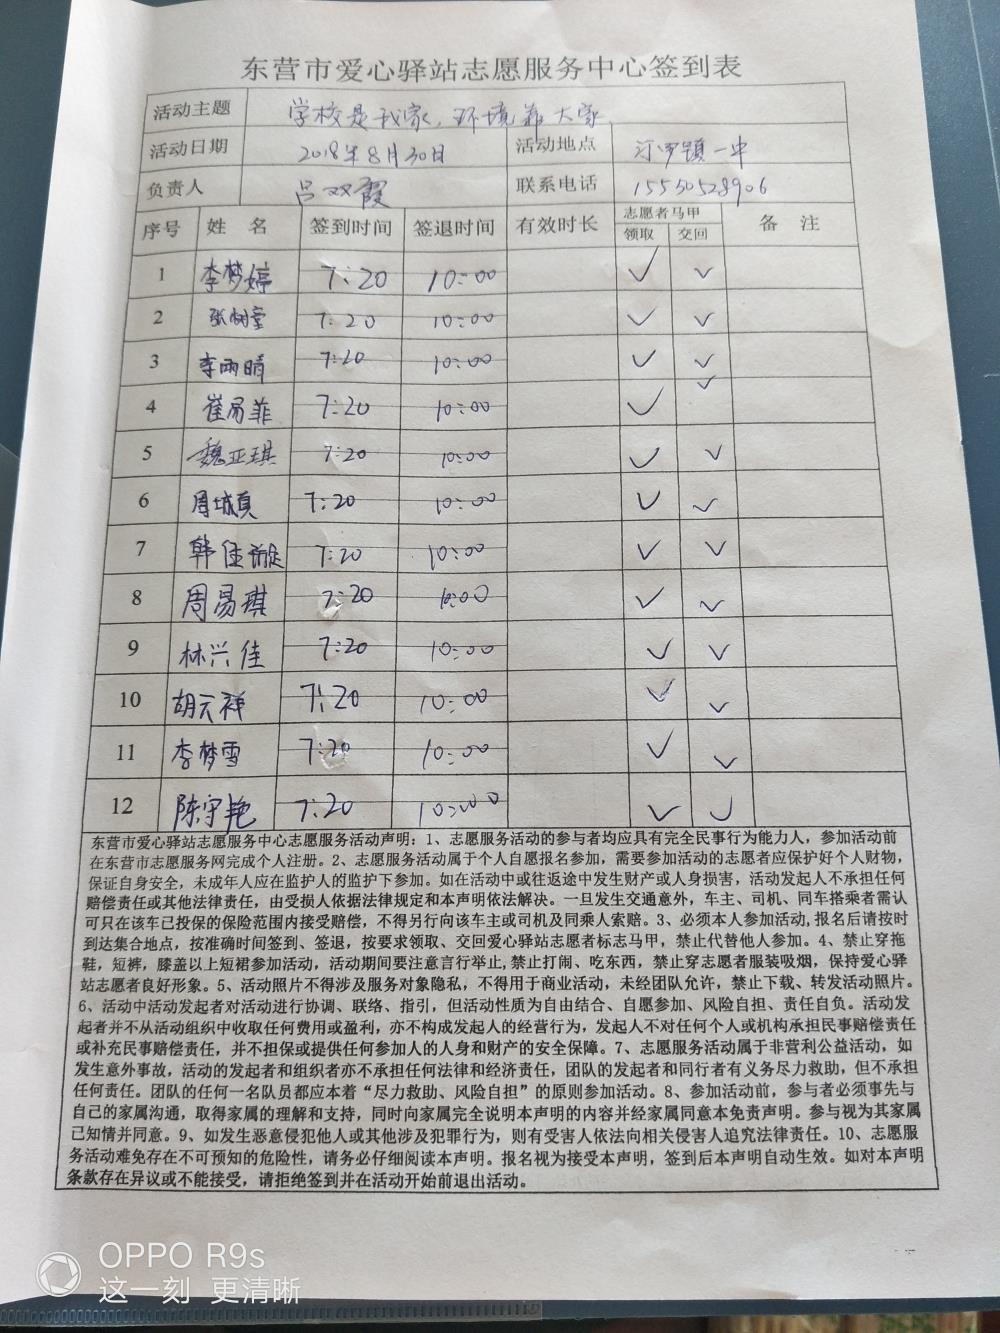 东营市爱心驿站志愿服务中心签到表
活动主题 学校是我家，环境靠大家
活动日期 2018年8月30日 活动地点 汀罗镇一中
负责人 吕双霞 联系电话 15550528906
序号 姓 名 签到时间 签退时间 有效时长 志愿者马甲 备 注
领取 交回
1 李梦婷 7:20 10:00 ✓ ✓
2 张树堂 7:20 10:00 ✓ ✓
3 李雨晴 7:20 10:00 ✓ ✓
4 崔易菲 7:20 10:00 ✓ ✓
5 魏亚琪 7:20 10:00 ✓ ✓
6 周城真 7:20 10:00 ✓ ✓
7 韩佳 7:20 10:00 ✓ ✓
8 周易琪 7:20 10:00 ✓ ✓
9 林兴佳 7:20 10:00 ✓ ✓
10 胡云祥 7:20 10:00 ✓ ✓
11 李梦雪 7:20 10:00 ✓ ✓
12 陈守艳 7:20 10:00 ✓ ✓
东营市爱心驿站志愿服务中心志愿服务活动声明：1、志愿服务活动的参与者均应具有完全民事行为能力人，参加活动前
在东营市志愿服务网完成个人注册。2、志愿服务活动属于个人自愿报名参加，需要参加活动的志愿者应保护好个人财物，
保证自身安全，未成年人应在监护人的监护下参加。如在活动中或往返途中发生财产或人身损害，活动发起人不承担任何
赔偿责任或其他法律责任，由受损人依据法律规定和本声明依法解决。一旦发生交通意外，车主、司机、同车搭乘者需认
可只在该车已投保的保险范围内接受赔偿，不得另行向该车主或司机及同乘人索赔。3、必须本人参加活动，报名后请按时
到达集合地点，按准确时间签到、签退，按要求领取、交回爱心驿站志愿者标志马甲，禁止代替他人参加。4、禁止穿拖
鞋，短裤，膝盖以上短裙参加活动，活动期间要注意言行举止，禁止打闹、吃东西，禁止穿志愿者服装吸烟，保持爱心驿
站志愿者良好形象。5、活动照片不得涉及服务对象隐私，不得用于商业活动，未经团队允许，禁止下载、转发活动照片。
6、活动中活动发起者对活动进行协调、联络、指引，但活动性质为自由结合、自愿参加、风险自担、责任自负。活动发
起者并不从活动组织中收取任何费用或盈利，亦不构成发起人的经营行为，发起人不对任何个人或机构承担民事赔偿责任
或补充民事赔偿责任，并不担保或提供任何参加人的人身和财产的安全保障。7、志愿服务活动属于非营利公益活动，如
发生意外事故，活动的发起者和组织者亦不承担任何法律和经济责任，团队的发起者和同行者有义务尽力救助，但不承担
任何责任。团队的任何一名队员都应本着“尽力救助、风险自担”的原则参加活动。8、参加活动前，参与者必须事先与
自己的家属沟通，取得家属的理解和支持，同时向家属完全说明本声明的内容并经家属同意本免责声明。参与视为其家属
已知情并同意。9、如发生恶意侵犯他人或其他涉及犯罪行为，则有受害人依法向相关侵害人追究法律责任。10、志愿服
务活动难免存在不可预知的危险性，请务必仔细阅读本声明。报名视为接受本声明，签到后本声明自动生效。如对本声明
条款存在异议或不能接受，请拒绝签到并在活动开始前退出活动。
OPPO R9s
这一刻 更清晰